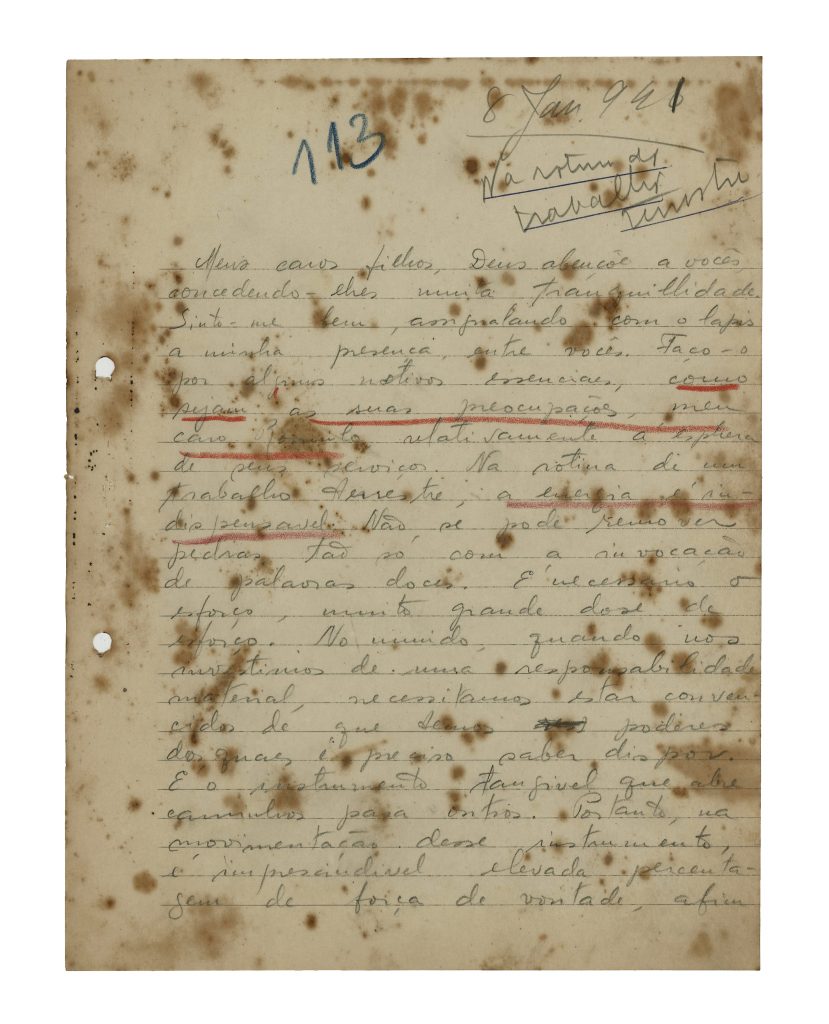 113
8 Jan. 941
Na rotina do
trabalho
terrestre
Meus caros filhos, Deus abençõe a vocês,
concedendo-lhes muita tranquillidade.
Sinto-me bem, assignalando com o lapis
a minha presença, entre vocês. Faço-o
por alguns motivos essenciaes, como
sejam as suas preocupações, meu
caro Romulo relativamente à esphera
de seus serviços. Na rotina de um
trabalho terrestre, a energia é in-
dispensavel. Não se pode remover
pedras tão só com a invocação
de palavras doces. E' necessario o
esforço, muito grande dose de
esforço. No mundo, quando nos
investimos de uma responsabilidade
material, necessitamos estar conven-
cidos de que temos poderes
dos quaes é preciso saber dispor.
E o instrumento tangivel que abre
caminhos para outros. Portanto, na
movimentação desse instrumento,
é imprescindivel elevada percenta-
gem de força de vontade, afim